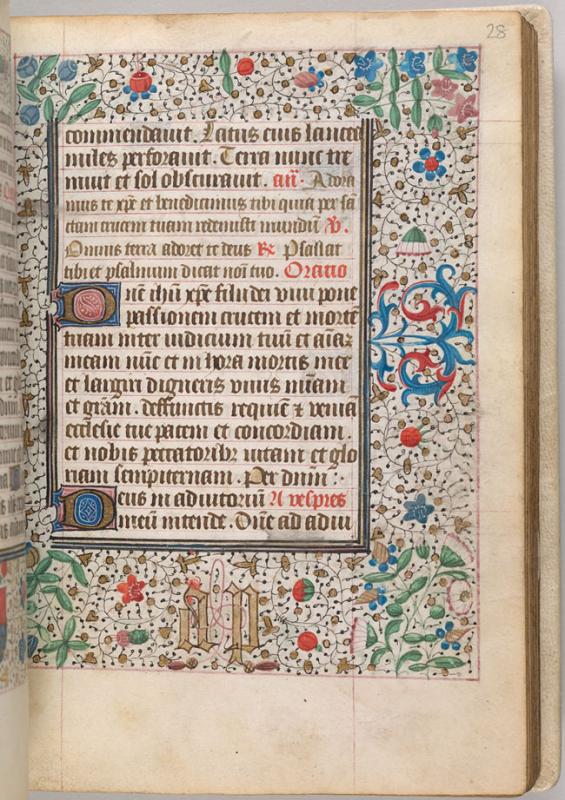 28
commendauit. Latus eius lancea
miles perforauit. Terra tunc tre
muit et sol obscurauit. añ. Adora
mus te xp̄e et benedicimus tibi quia per sā
ctam crucem tuam redemisti mundū ℣.
Omnis terra adoret te deus ℟ Psallat
tibi et psalmum dicat nōi tuo. Oratio
Dñe ihū xp̄e fili dei viui pone
passionem crucem et mortē
tuam inter iudicium tuū et aīaꝫ
meam nūc et in hora mortis mee
et largiri digneris viuis mīam
et grām. deffunctis requiē ⁊ veniā
ecclesie tue pacem et concordiam.
et nobis peccatoribꝫ uitam et glo
riam sempiternam. Per dnm̄
Deus in adiutoriū A vespres
meū intende. Dñe ad adiu